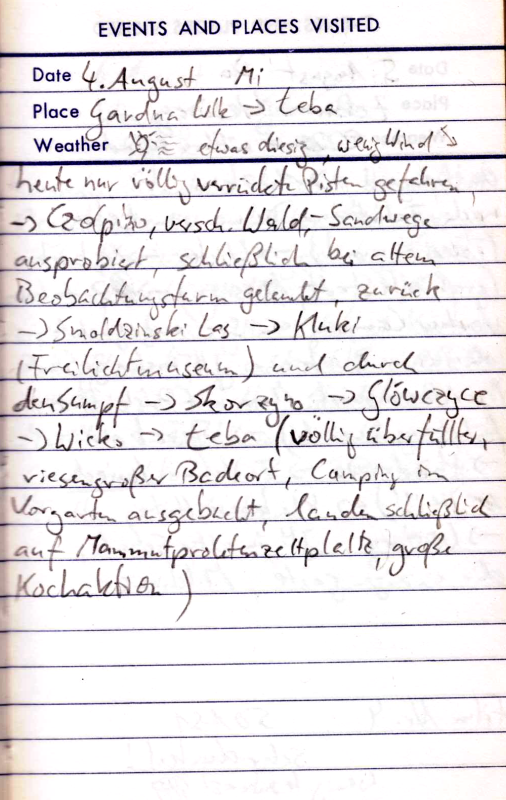 EVENTS AND PLACES VISITED
Date 4. August Mi
Place Gardna Wlk → Łeba
Weather etwas diesig, wenig Wind ↘
heute nur völlig verrückte Pisten gefahren,
→ Czołpino, versch. Wald-, Sandwege
ausprobiert, schließlich bei altem
Beobachtungsturm gelandet, zurück
→ Smoldzinski Las → Kluki
(Freilichtmuseum) und durch
den Sumpf → Skorzyno → Główczyce
→ Wicko → Łeba (völlig überfüllter,
riesengroßer Badeort, Camping im
Vorgarten ausgebucht, landen schließlich
auf Mammutproletenzeltplatz, große
Kochaktion)